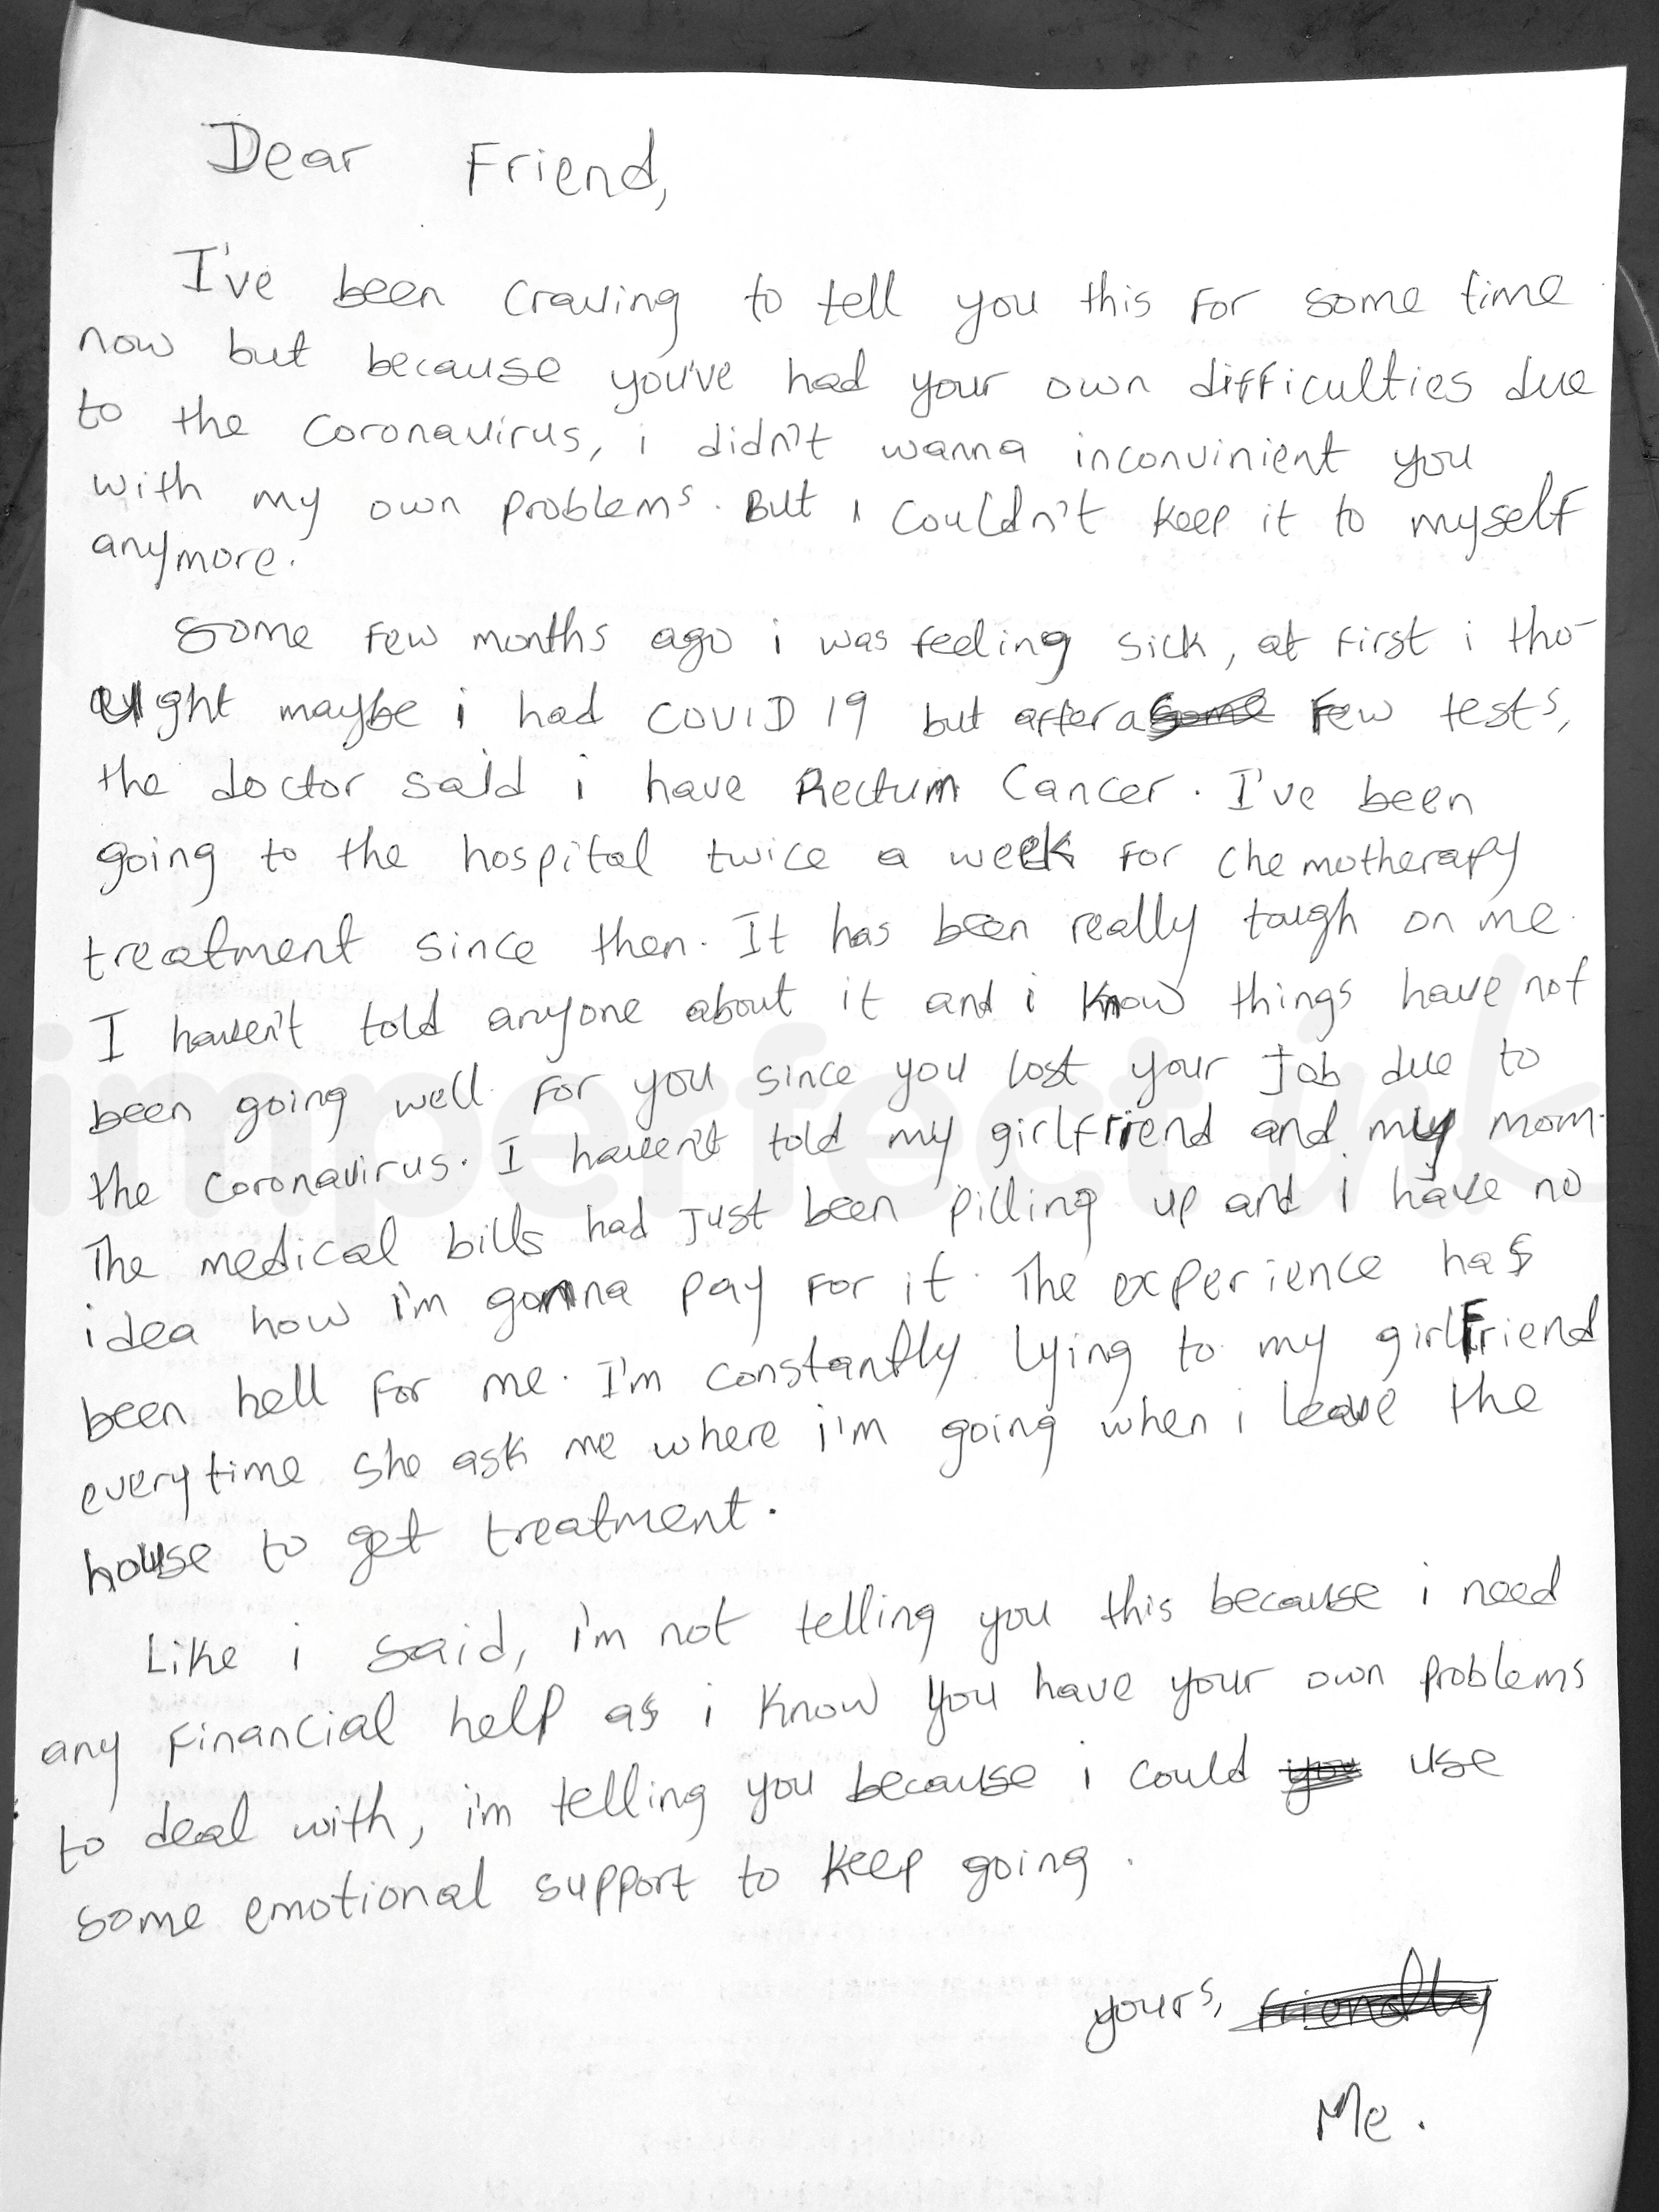 Dear Friend,
I've been craving to tell you this for some time
now but because you've had your own difficulties due
to the coronavirus, i didn't wanna inconvinient you
with my own problems. But i couldn't keep it to myself
anymore.
Some few months ago i was feeling sick, at first i tho-
ught maybe i had COVID 19 but after a some few tests,
the doctor said i have Rectum Cancer. I've been
going to the hospital twice a week for chemotherapy
treatment since then. It has been really tough on me.
I haven't told anyone about it and i know things have not
been going well for you since you lost your job due to
the coronavirus. I haven't told my girlfriend and my mom.
The medical bills had just been pilling up and i have no
idea how i'm gonna pay for it. The experience has
been hell for me. I'm constantly lying to my girlfriend
everytime she ask me where i'm going when i leave the
house to get treatment.
Like i said, i'm not telling you this because i need
any financial help as i know you have your own problems
to deal with, i'm telling you because i could you use
some emotional support to keep going.
yours, friendly
Me.
imperfect ink